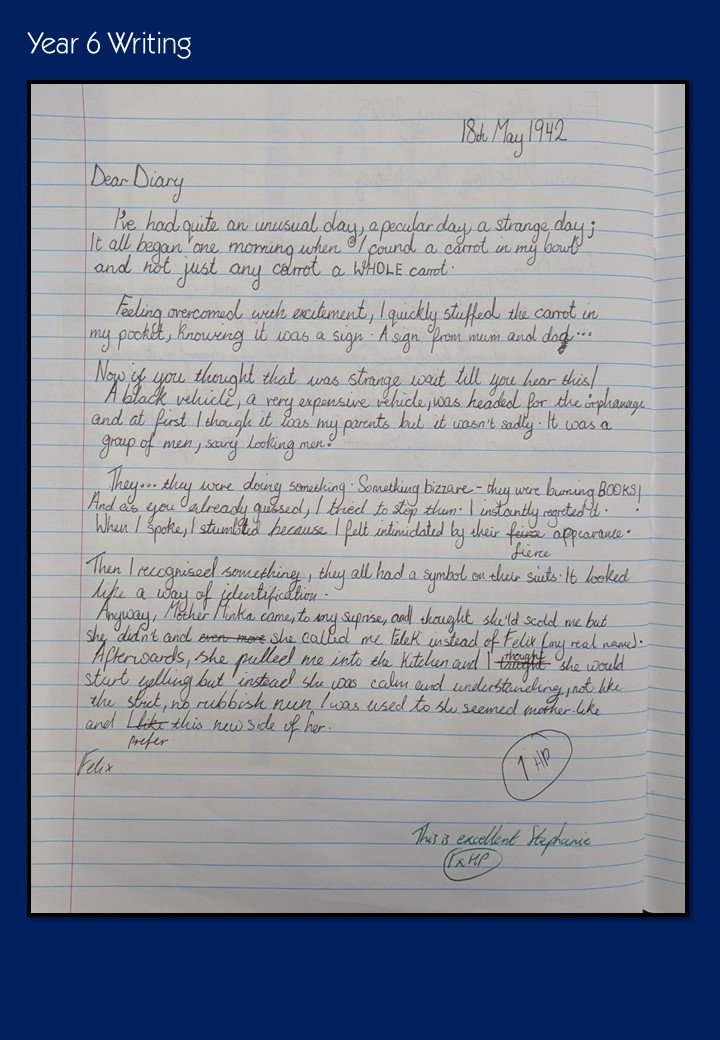 Year 6 Writing
18th May 1942
Dear Diary
I've had quite an unusual day, a pecular day, a strange day;
It all began one morning when I cound a carrot in my bowl
and not just any carrot a WHOLE carrot.
Feeling overcomed with excitement, I quickly stuffed the carrot in
my pocket, knowing it was a sign. A sign from mum and dad...
Now if you thought that was strange wait till you hear this!
A black vehicle, a very expensive vehicle, was headed for the orphanage
and at first I though it was my parents but it wasn't sadly. It was a
group of men, scary looking men.
They... they were doing something. Something bizzare - they were burning BOOKS!
And as you already guessed, I tried to stop them. I instantly regreted it.
When I spoke, I stumbled because I felt intimidated by their feirce appearance.
fierce
Then I recognised something, they all had a symbol on their suits. It looked
like a way of identification.
Anyway, Mother Minka came, to my suprise, and thought she'ld scold me but
she didn't and even more she called me Felek instead of Felix (my real name).
thought
Afterwards, she pulled me into the kitchen and I she would
start yelling but instead she was calm and understanding, not like
the strict, no rubbish nun I was used to she seemed mother-like
and I like this new side of her.
prefer
Felix
1 HP
This is excellent Stephanie
1 x HP